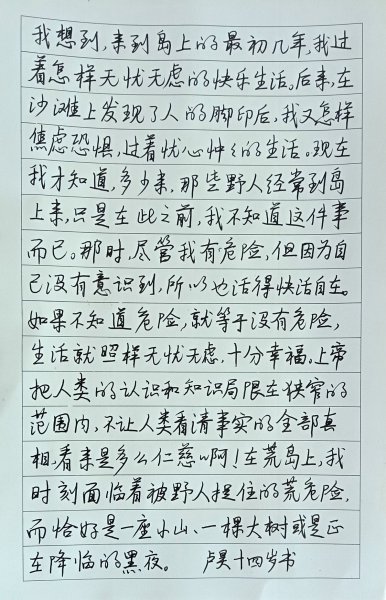 我想到，来到岛上的最初几年，我过
着怎样无忧无虑的快乐生活。后来，在
沙滩上发现了人的脚印后，我又怎样
焦虑恐惧，过着忧心忡忡的生活。现在
我才知道，多少来，那些野人经常到岛
上来，只是在此之前，我不知道这件事
而已。那时，尽管我有危险，但因为自
己没有意识到，所以也活得快活自在。
如果不知道危险，就等于没有危险，
生活就照样无忧无虑，十分幸福。上帝
把人类的认识和知识局限在狭窄的
范围内，不让人类看清事实的全部真
相，看来是多么仁慈啊！在荒岛上，我
时刻面临着被野人捉住的荒危险，
而恰好是一座小山、一棵大树或是正
在降临的黑夜。 卢昊十四岁书